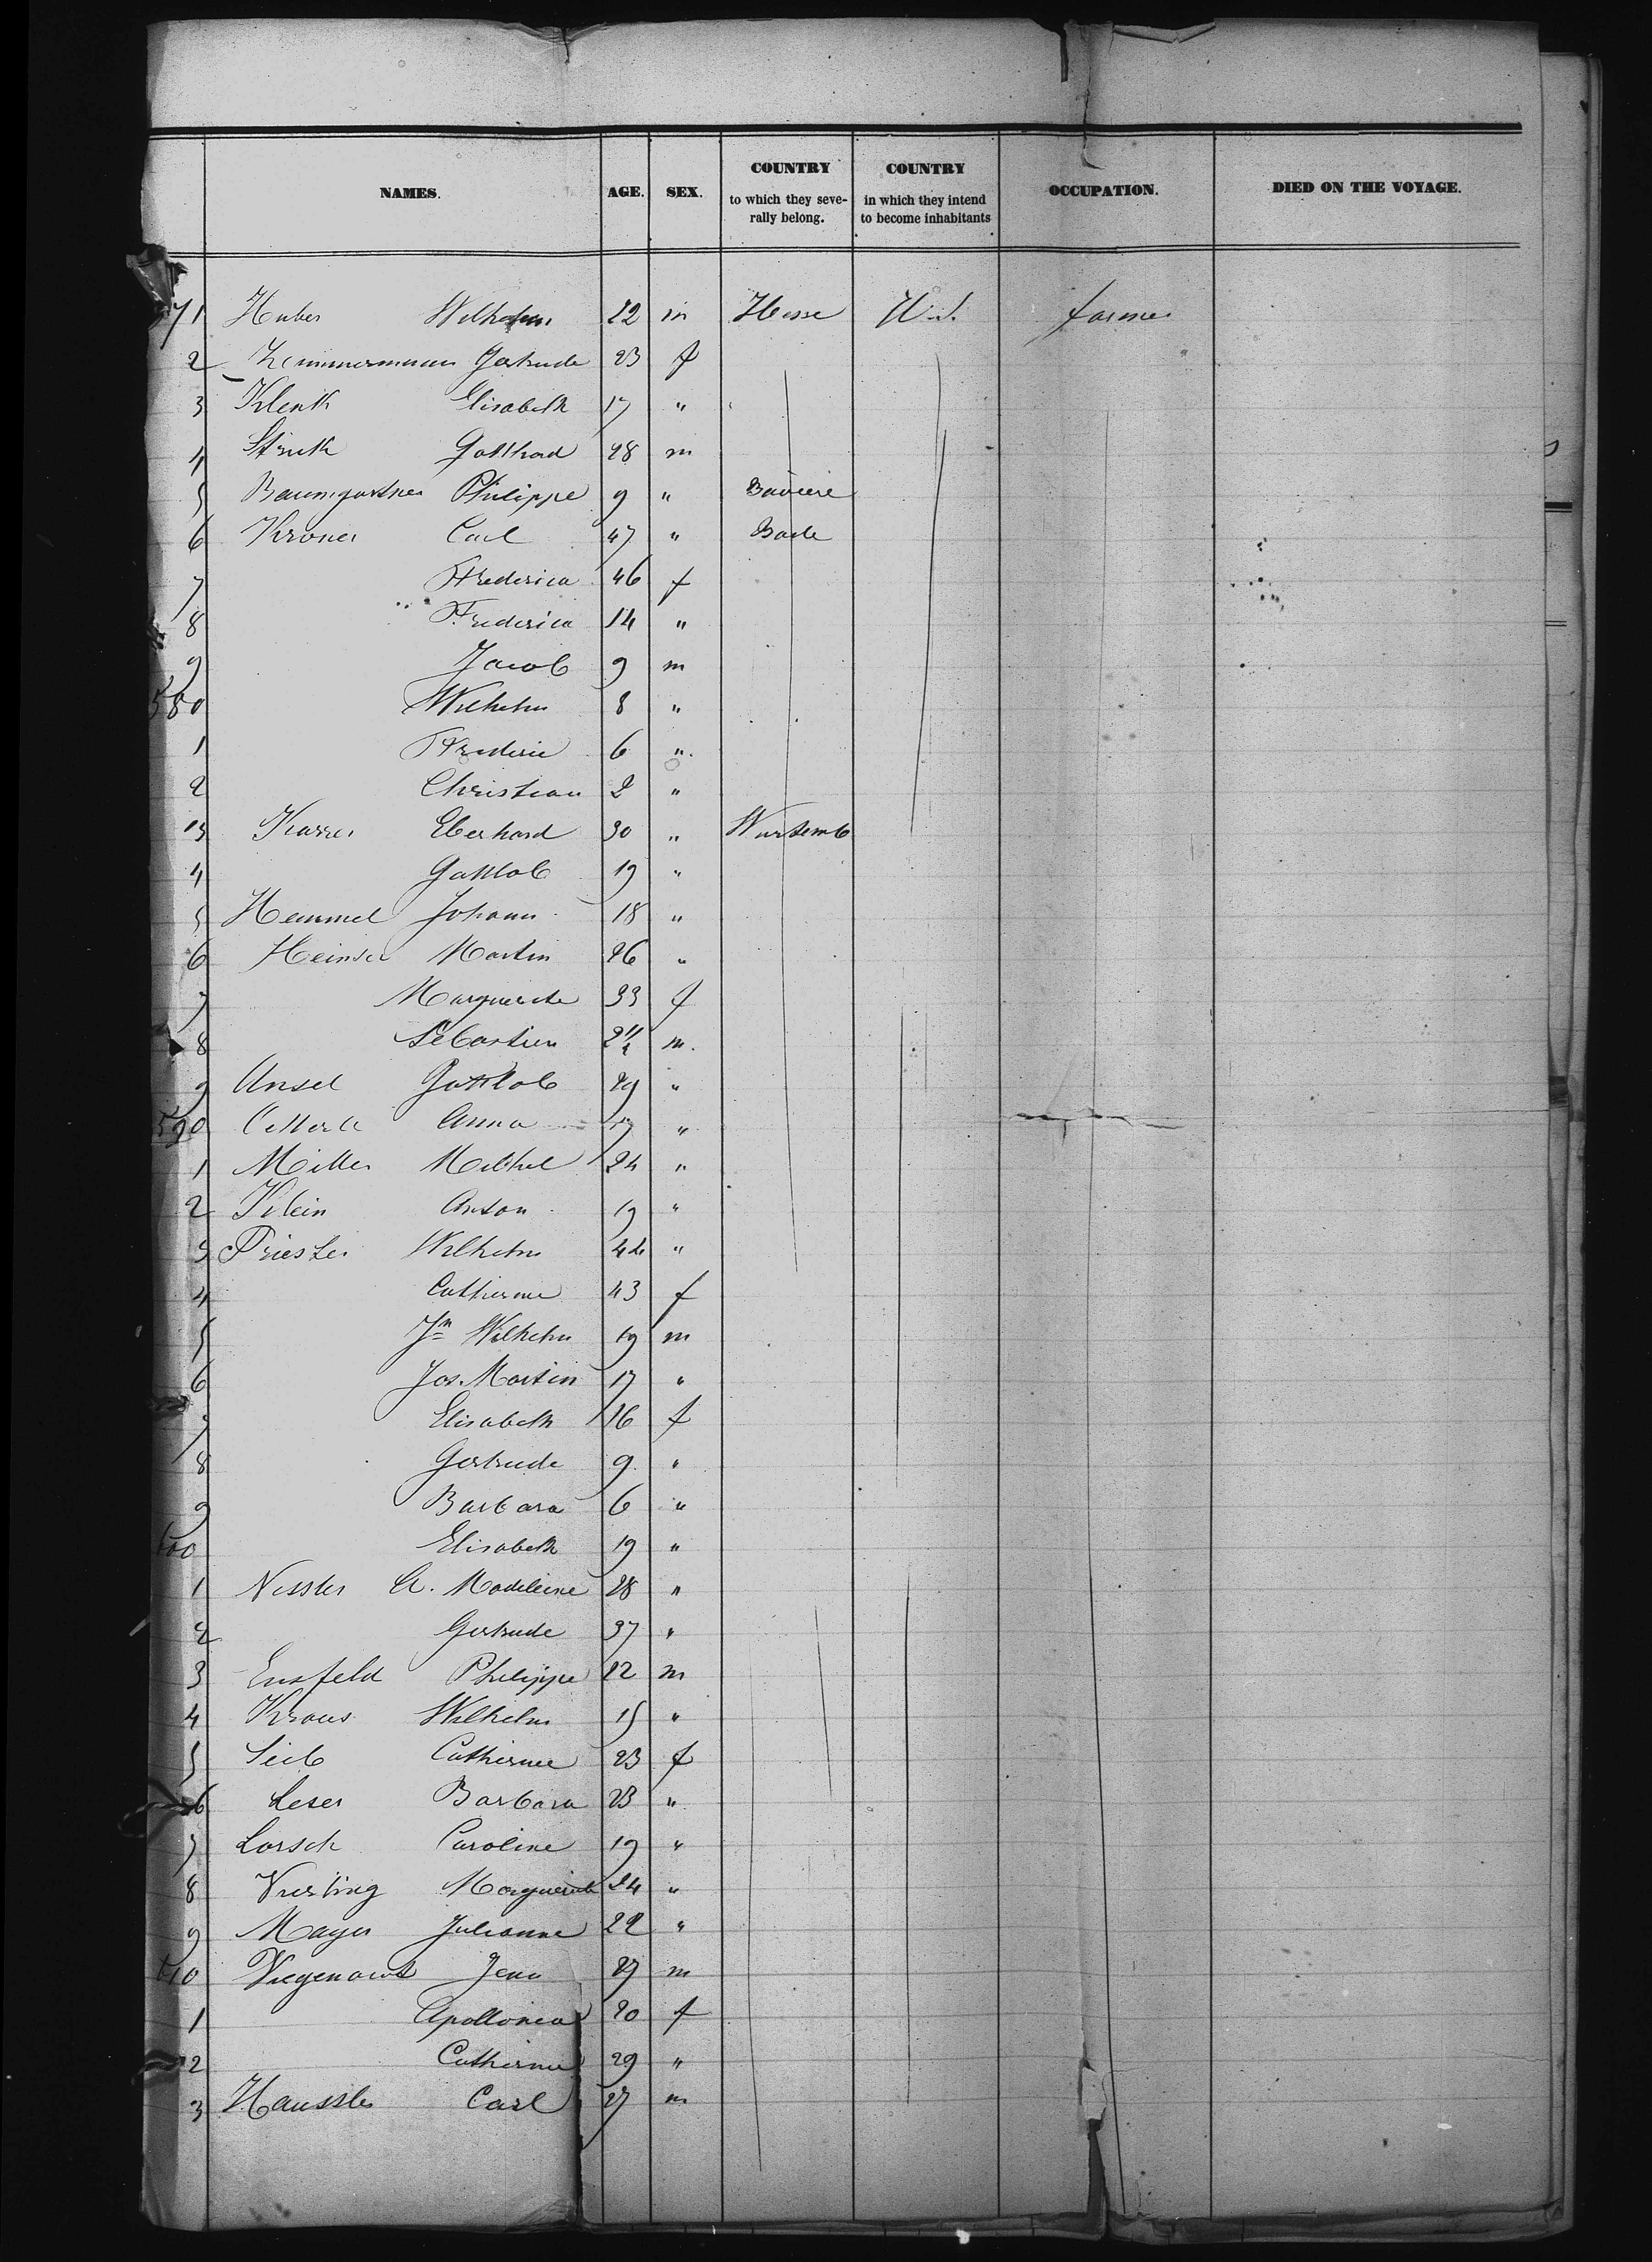 NAMES. AGE. SEX. COUNTRY to which they seve- rally belong. COUNTRY in which they intend to become inhabitants OCCUPATION. DIED ON THE VOYAGE.
571 Huber Wilhelm 22 m Hesse U.S. farmer
2 Zimmermann Gertrude 23 f
3 Klenk Elisabeth 17 "
4 Struk Gotthard 28 m
5 Baumgartner Philippe 9 " Baviere
6 Kroner Carl 47 " Bade
7 Frederica 46 f
8 Frederica 14 "
9 Jacob 9 m
580 Wilhelm 8 "
1 Frederic 6 "
2 Christian 2 "
13 Karrer Eberhard 30 " Wurtemb
4 Gottlob 19 "
5 Hemmel Johann 18 "
6 Heinser Martin 26 "
7 Marguerite 33 f
8 Sebastien 2 m.
9 Ansel Gottlob 29 "
590 Anna 17 "
1 Miller Michel 24 "
2 Klein Anton 19 "
3 Priester Wilhelm 44 "
4 Catherine 43 f
5 Jn Wilhelm 19 m
6 Jos. Martin 17 "
7 Elisabeth 16 f
8 Gertrude 9 "
9 Barbara 6 "
600 Elisabeth 19 "
1 Nessler A. Madeleine 28 "
2 Gertrude 37 "
3 Ensfeld Philippe 22 m
4 Kraus Wilhelm 15 "
5 Seib Catherine 23 f
6 Leser Barbara 23 "
7 Lorsch Caroline 19 "
8 Vierling Marguerite 24 "
9 Mayer Julianne 22 "
610 Jean 27 m
1 Apollonia 20 f
2 Catherine 29 "
3 Haussler Carl 27 m